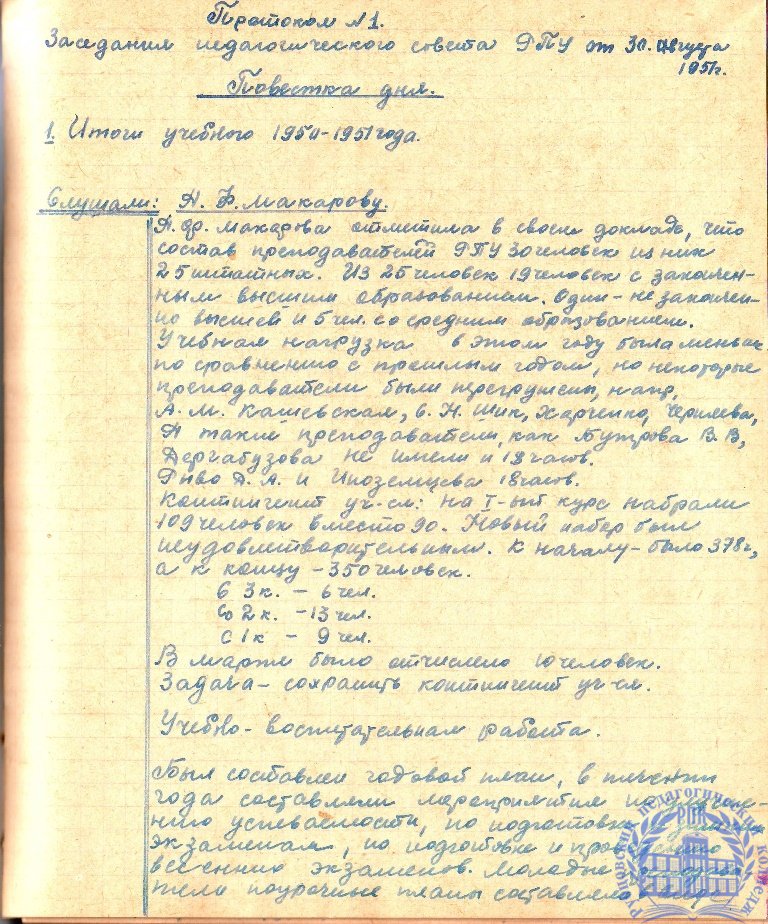 Протокол №1.
Заседания педагогического совета РПУ от 30 августа
1951г.
Повестка дня.
1. Итоги учебного 1950-1951 года.
Слушали: А. Ф. Макарову.
А. Ф. Макарова отметила в своем докладе, что
состав преподавателей РПУ 30 человек из них
25 штатных. Из 25 человек 19 человек с закончен-
ным высшим образованием. Один - не закончен-
но высшей и 5 чел. со средним образованием.
Учебная нагрузка в этом году была меньше
по сравнению с прошлым годом, но некоторые
преподаватели были перегружены, напр.
А. М. Кашевская, Е. Н. Шик, Харченко, Черняева,
А такие преподаватели, как Бутрова В. В,
Дергабузова не имели и 18 часов.
и Иноземцева 18 часов.
Контингент уч-ся: на I-ый курс набрали
109 человек вместо 90. Новый набор был
неудовлетворительным. К началу - было 378 ч,
а к концу - 350 человек.
С 3 к. - 6 чел.
Со 2 к. - 13 чел.
С 1 к - 9 чел.
В марте было отчислено 10 человек.
Задача - сохранить контингент уч-ся.
Учебно-воспитательная работа.
Был составлен годовой план, в течении
года составляли мероприятия по
нию успеваемости, по подготовке
экзаменам, по подготовке и
весенних экзаменов. Молодые
тели поурочные планы составляли
РУБЦОВСКИЙ ПЕДАГОГИЧЕСКИЙ КОЛЛЕДЖ
РПК